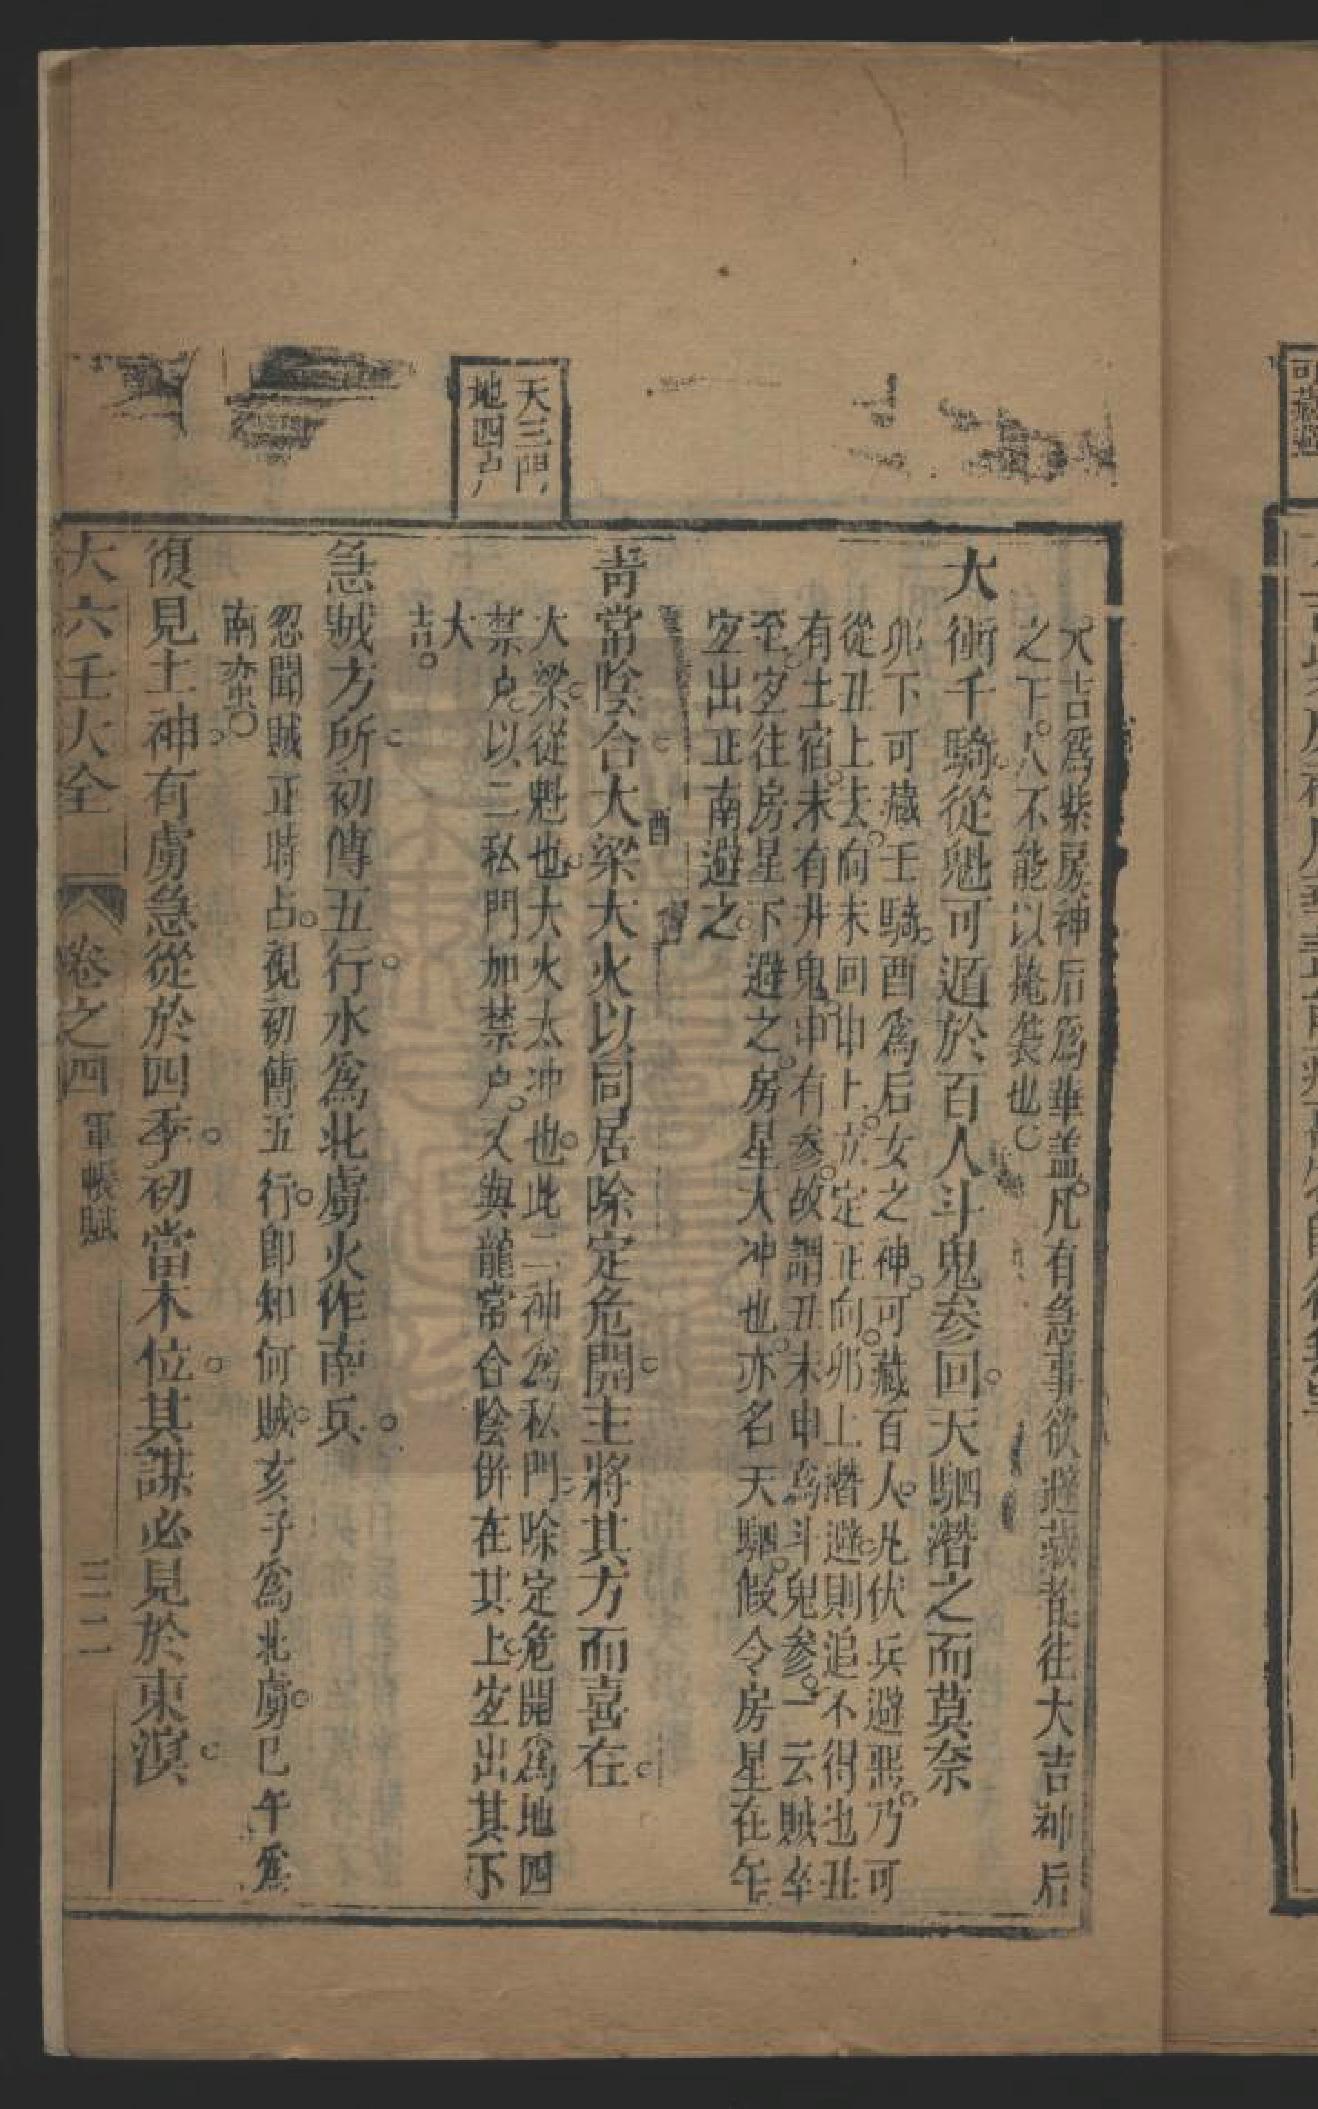 天三門
地四户
大吉爲紫房神后爲華盖凡有急事欲避藏者往大吉神后
之下。人不能以掩袭也。
大衝千騎從魁可遁於百人斗鬼参回天駟潜之而莫奈
卯下可藏千騎。酉爲后女之神。可藏百人。凡伏兵避惡乃可
從丑上去。向未回申上。立定正向卯上潜避則追不得也丑
有土宿。未有井鬼。申有参。故謂丑未申爲斗鬼参。一云賊卒
至。宜往房星下避之。房星大冲也。亦名天駟。假令房星在午
宜出正南避之。
酉
青常陰合大梁大火以同居除定危開主將其方而喜在
大梁從魁也。大火太冲也。此二神爲私門。除定危開爲地四
禁户。以二私門加禁户。又與龍常合陰併在其上。宜出其下
大
吉。
急賊方所初傳五行水爲北虜火作南兵
忽聞賊正時占。視初傳五行。卽知何賊。亥子爲北虜。巳午爲
南蛮。
復見土神有虜急從於四季初當木位其謀必見於東溟
大六壬大全
卷之四
軍帳賦